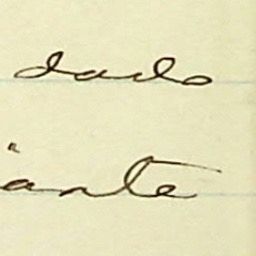 dado
iante